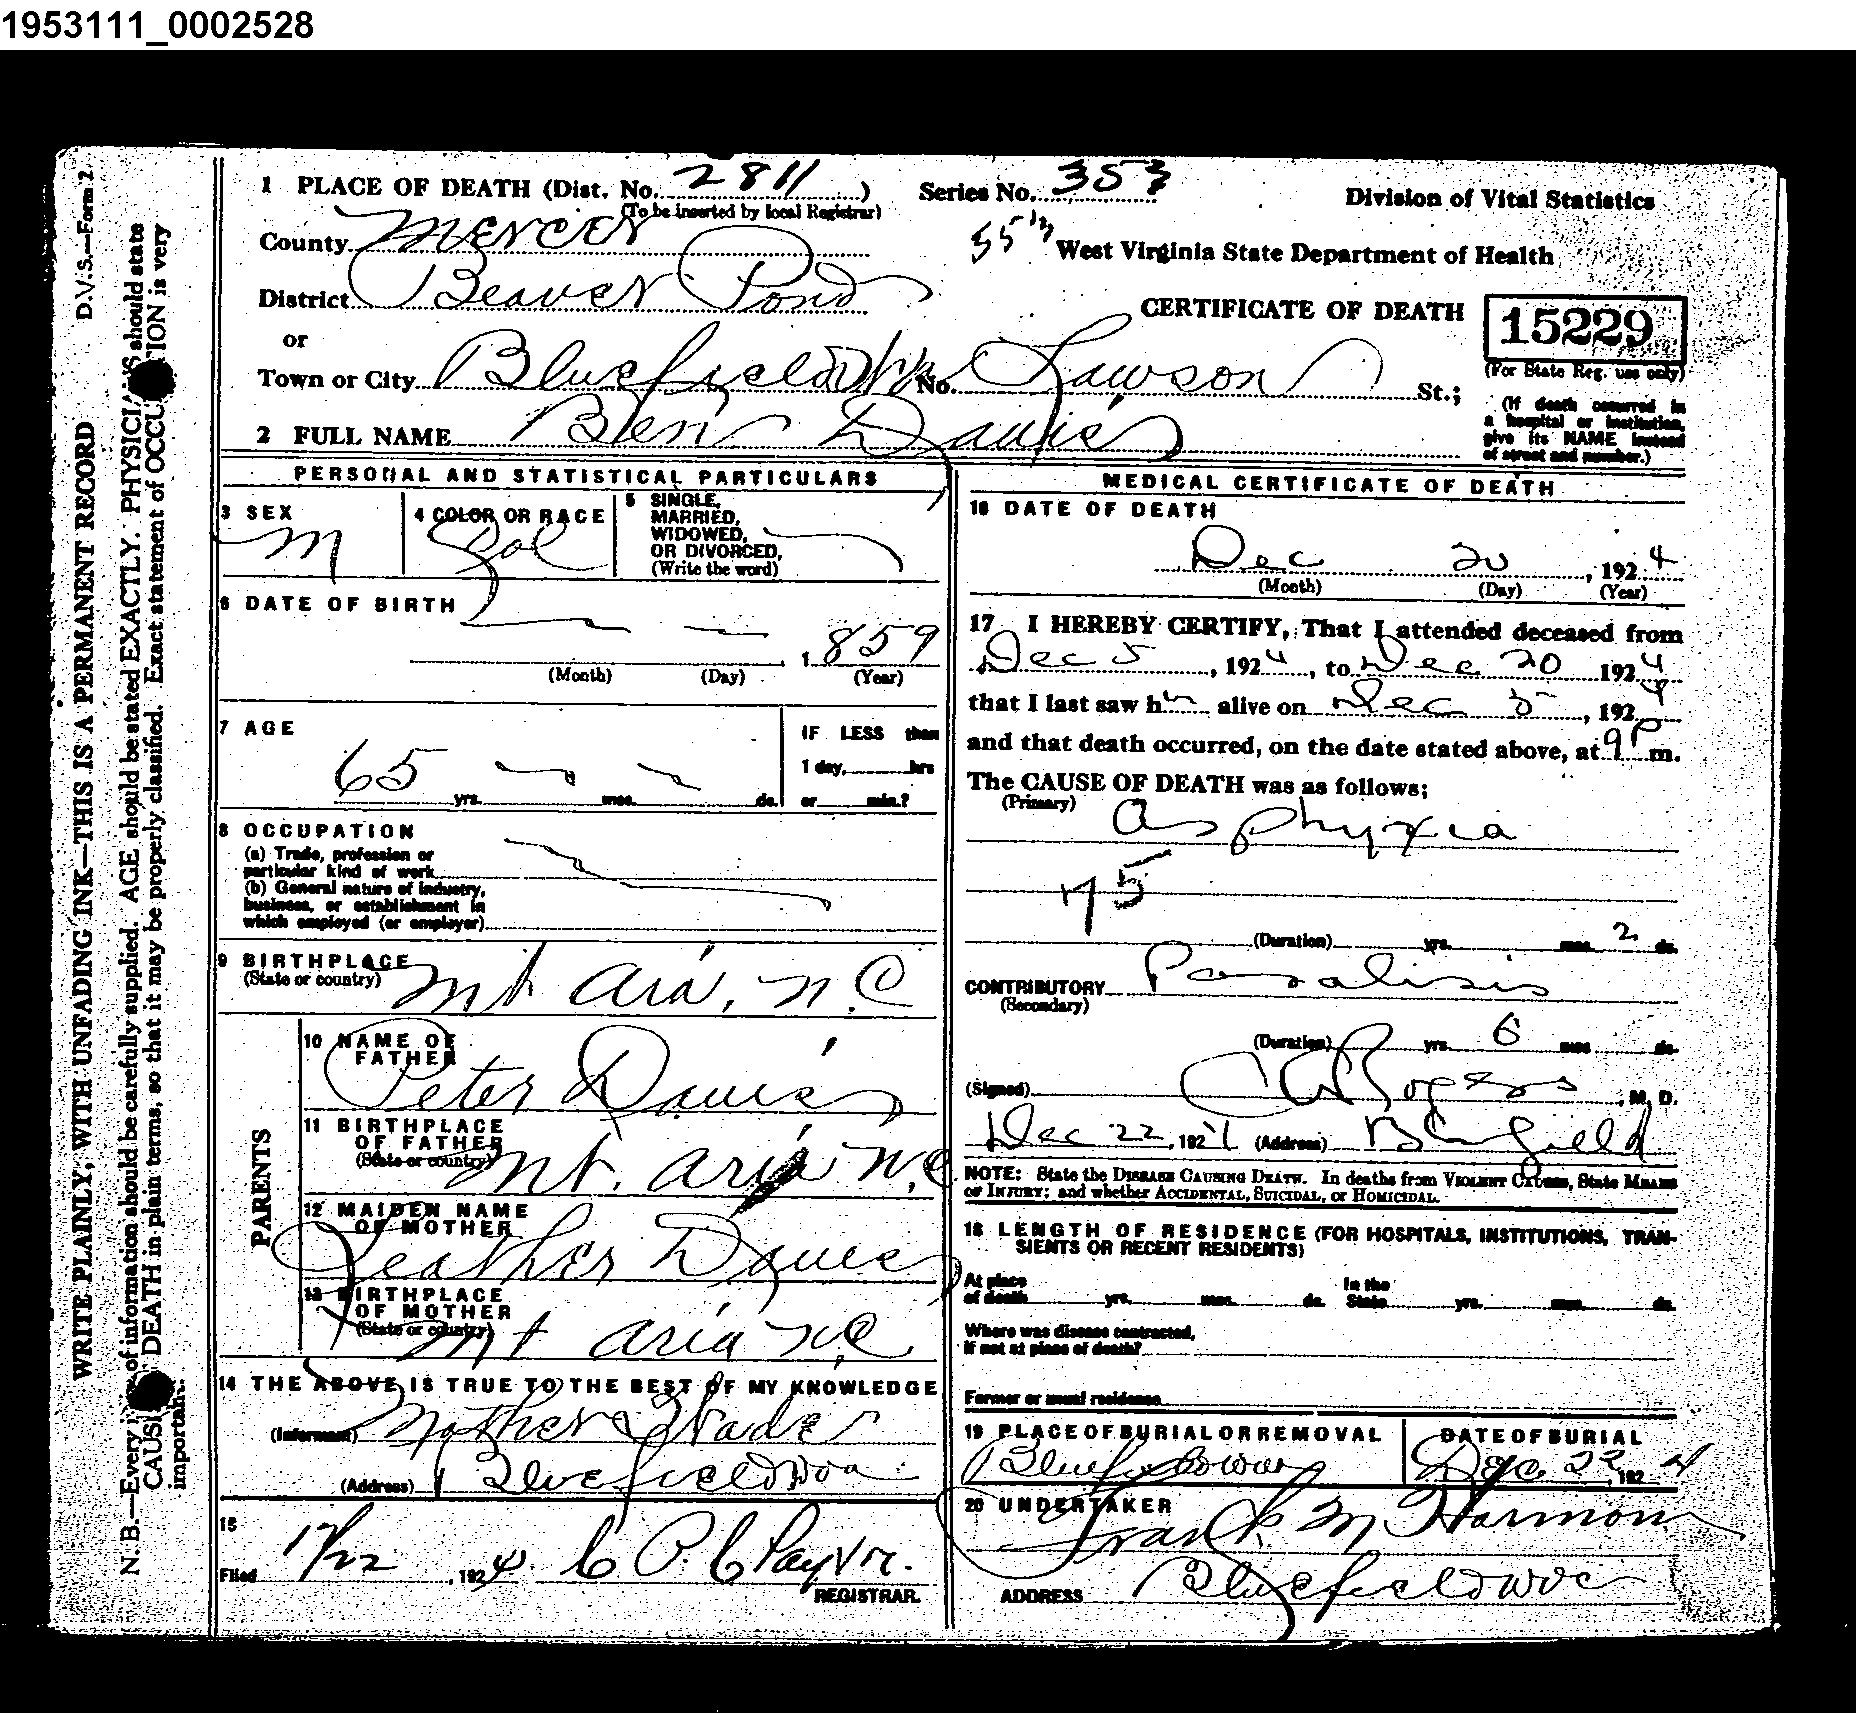 1953111_0002528
D.V.S.—Form 2.
WRITE PLAINLY, WITH UNFADING INK—THIS IS A PERMANENT RECORD
N. B.—Every of information should be carefully supplied. AGE should be stated EXACTLY. PHYSICIANS should state
CAUSE DEATH in plain terms, so that it may be properly classified. Exact statement of OCCUPATION is very
important.
1 PLACE OF DEATH (Dist. No. 2811 )
(To be inserted by local Registrar)
Series No. 353
Division of Vital Statistics
County Mercer
West Virginia State Department of Health
District Beaver Pond
CERTIFICATE OF DEATH
15229
(For State Reg. use only)
or
Town or City Bluefield W Va No. Lawson St.;
(If death occurred in
a hospital or institution,
give its NAME instead
of street and number.)
2 FULL NAME Ben Davis
PERSONAL AND STATISTICAL PARTICULARS
3 SEX M
4 COLOR OR RACE Col
5 SINGLE,
MARRIED,
WIDOWED,
OR DIVORCED,
(Write the word)
6 DATE OF BIRTH
1859
(Month) (Day) (Year)
7 AGE
65 yrs. mos. ds.
IF LESS than
1 day, hrs
or min.?
8 OCCUPATION
(a) Trade, profession or
particular kind of work
(b) General nature of industry,
business, or establishment in
which employed (or employer)
9 BIRTHPLACE
(State or country) Mt Aria, N.C
PARENTS
10 NAME OF
FATHER
Peter Davis
11 BIRTHPLACE
OF FATHER
(State or country) Mt. Aria N.C
12 MAIDEN NAME
OF MOTHER
Leather Davis
13 BIRTHPLACE
OF MOTHER
(State or country) Mt Aria N.C
14 THE ABOVE IS TRUE TO THE BEST OF MY KNOWLEDGE
(Informant) Mother Wade
(Address) Bluefield W Va
15
Filed 12/22, 1924
REGISTRAR.
MEDICAL CERTIFICATE OF DEATH
16 DATE OF DEATH
Dec 20, 1924
(Month) (Day) (Year)
17 I HEREBY CERTIFY, That I attended deceased from
Dec 5, 1924, to Dec 20 1924
that I last saw h alive on Dec 5, 1924
and that death occurred, on the date stated above, at 9P m.
The CAUSE OF DEATH was as follows:
(Primary) Asphyxia
75
(Duration) yrs. mos. 2 ds.
CONTRIBUTORY Paralisis
(Secondary)
(Duration) yrs. 6 mos ds.
(Signed) Rogers, M. D.
Dec 22, 1924 (Address) Bluefield
NOTE: State the DISEASE CAUSING DEATH. In deaths from VIOLENT CAUSES, State MEANS
OF INJURY; and whether ACCIDENTAL, SUICIDAL, or HOMICIDAL.
18 LENGTH OF RESIDENCE (FOR HOSPITALS, INSTITUTIONS, TRAN-
SIENTS OR RECENT RESIDENTS)
At place
of death yrs. mos. ds.
In the
State yrs. mos. ds.
Where was disease contracted,
if not at place of death?
Former or usual residence
19 PLACE OF BURIAL OR REMOVAL
Bluefield W Va
DATE OF BURIAL
Dec 22, 1924
20 UNDERTAKER
Frank M Harmon
ADDRESS Bluefield W Va